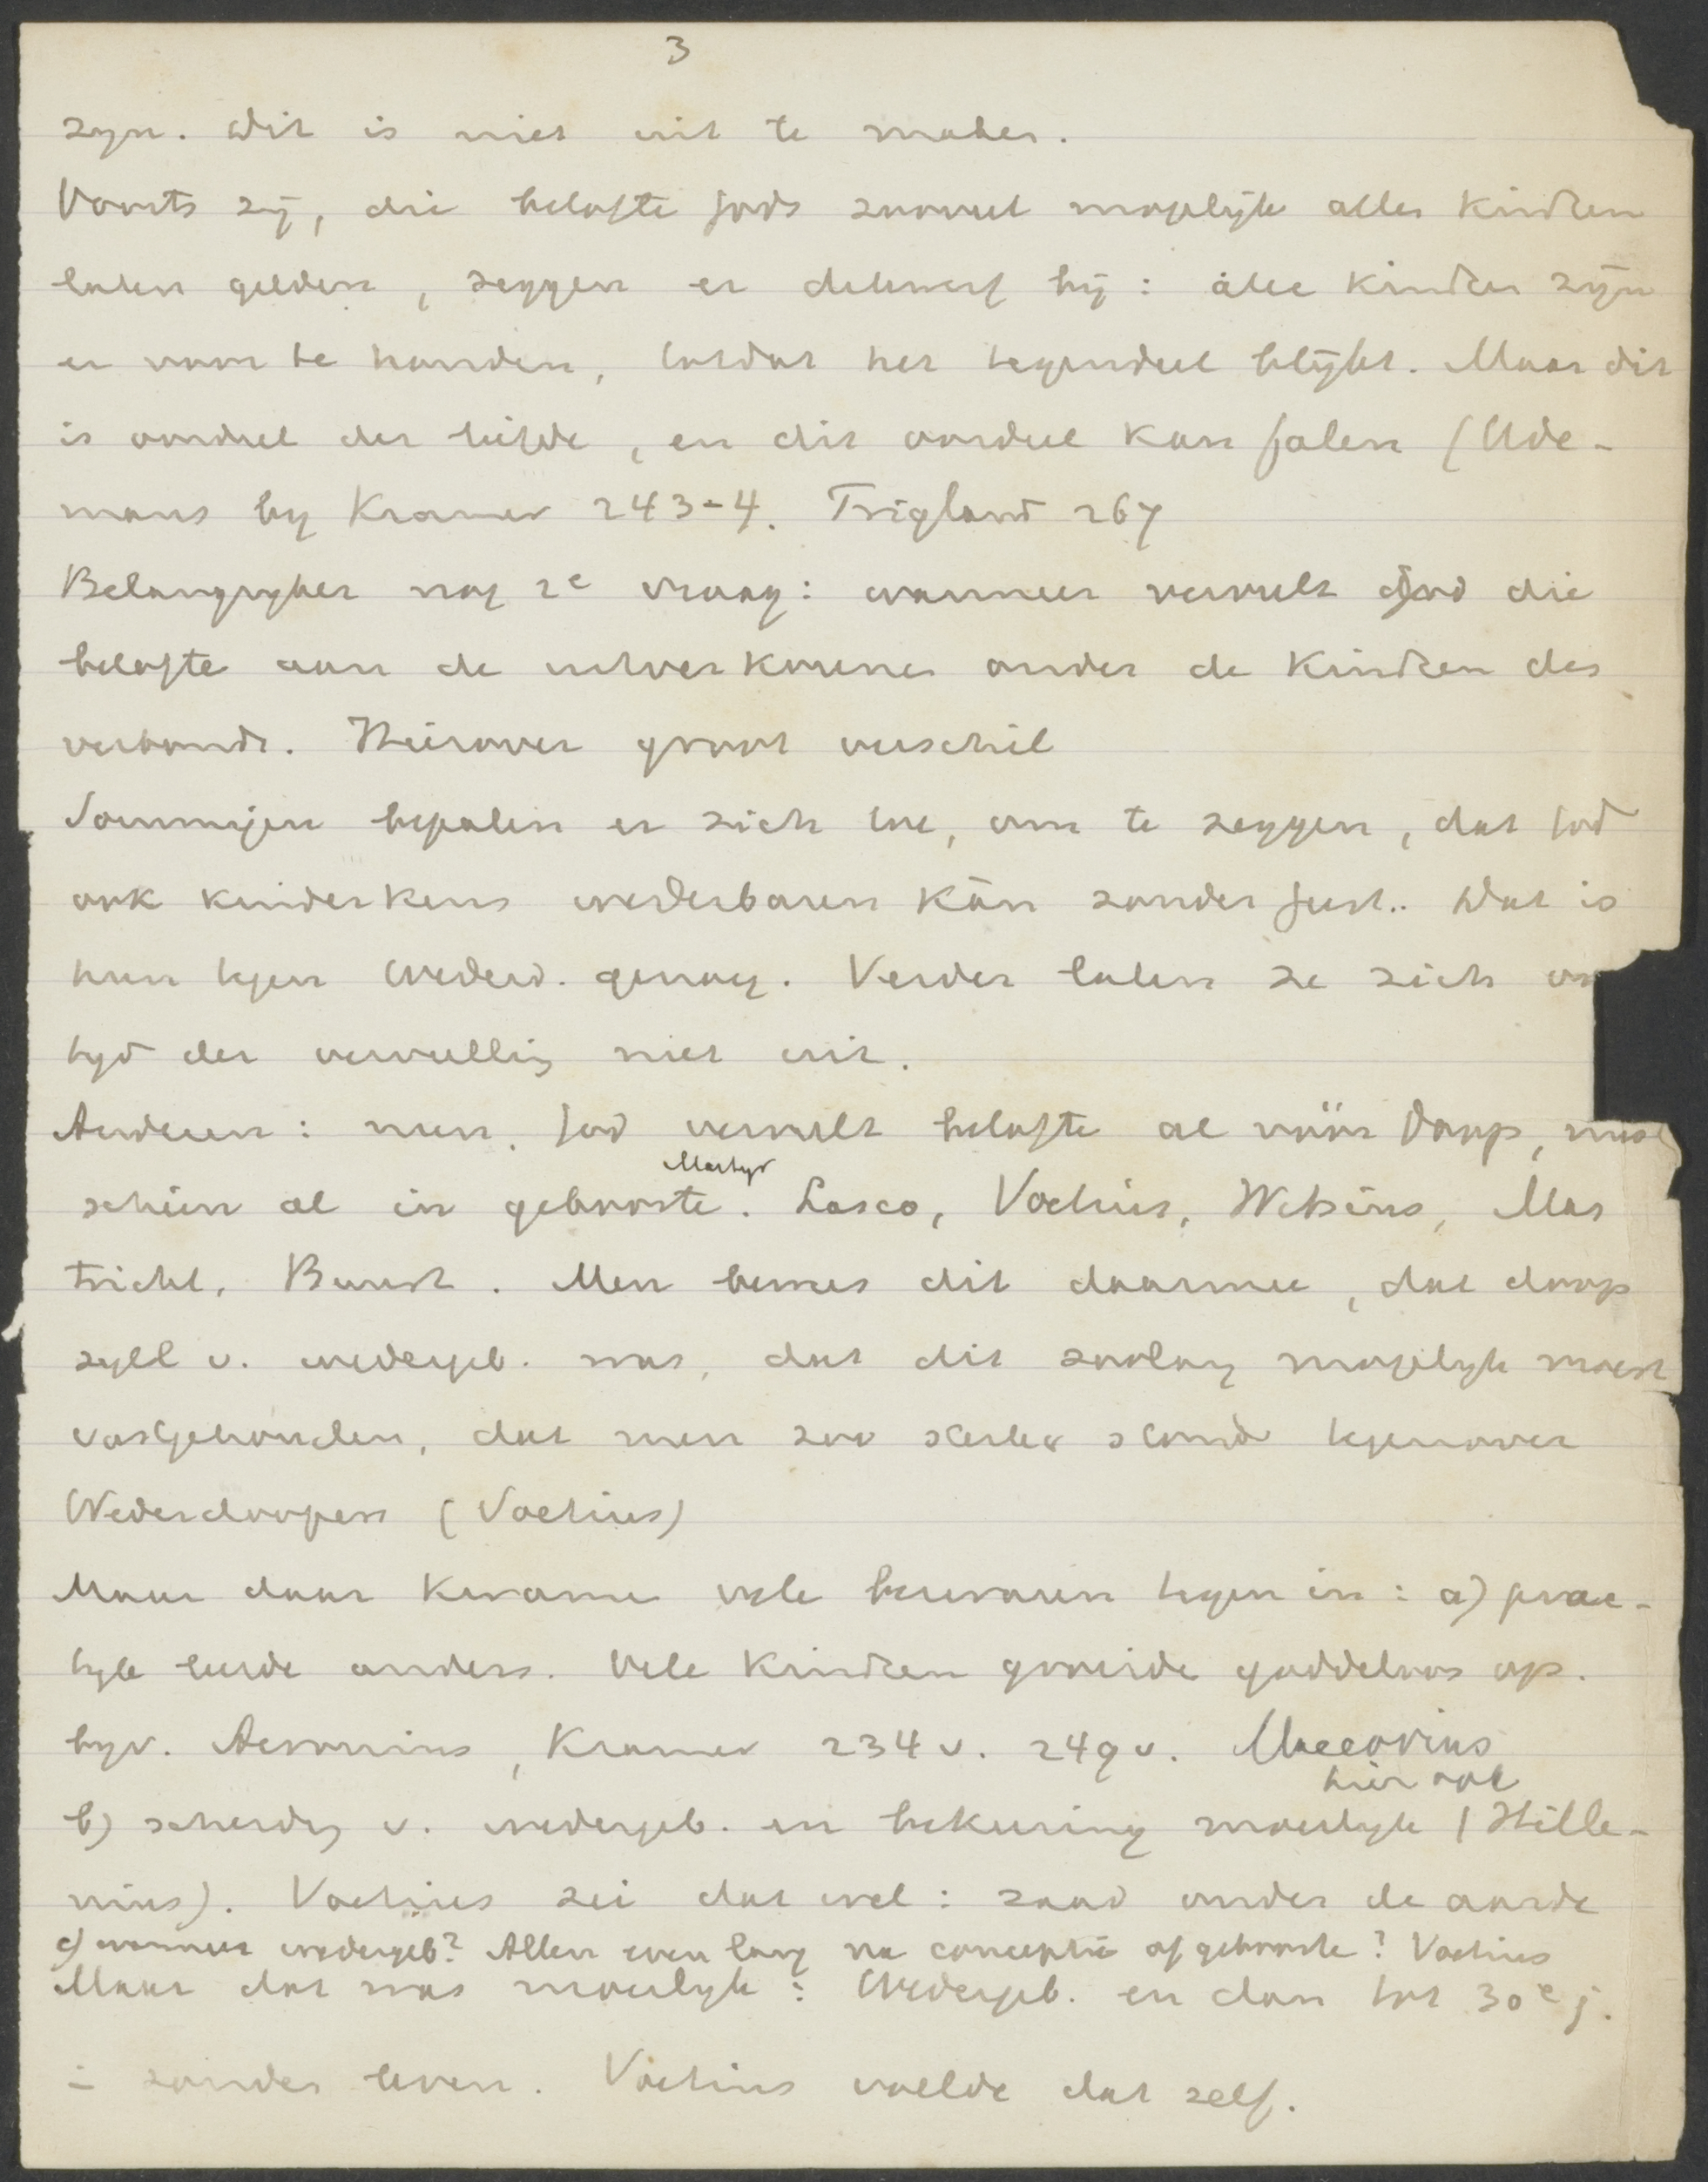 3
zyn. Dit is niet uit te maken.
Voorts zij, die belofte Gods zooveel mogelijk allen kindren
laten gelden, zeggen er dikwerf bij: alle kindren zijn
er voor te houden, totdat het tegendeel blijkt. Maar dit
is oordeel der liefde, en dit oordeel kan falen (Ude-
mans by Kramer 243-4. Trigland 267
Belangryker nog 2e vraag: wanneer vervult God die
belofte aan de uitverkorenen onder de kindren des
verbonds. Hierover groot verschil
Sommigen bepalen er zich toe, om te zeggen, dat God
ook kinderkens wederbaren kàn zonder feest.. Dat is
hun tegen Wederd. genoeg. Verder laten ze zich ov
tyd der vervulling niet uit.
Anderen: neen. God vervult belofte al vóór Doop, mis
schien al in geboorte. Martyr Lasco, Voetius, Witsius, Mas
tricht, Burest. Men bewees dit daarmee, dat doop
zegel v. wedergeb. was, dat dit zoolang mogelyk moest
vastgehouden, dat men zoo sterker stond tegenover
Wederdoopers (Voetius)
Maar daar kwamen vele bezwaren tegen in: a) prac-
tyk leerde anders. Vele kindren groeide goddeloos op.
byv. Acronius, Kramer 234 v. 249 v. Maccovius
hier ook
b) scheidg v. wedergeb. en bekeering moeilyk (Hille-
nius). Voetius zei dat wel: zaad onder de aarde
c) wanneer wedergeb? Allen even lang na conceptie of geboorte? Voetius
Maar dat was moeilyk: Wedergeb. en dan tot 30e j.
in zonder leven. Voetius voelde dat zelf.